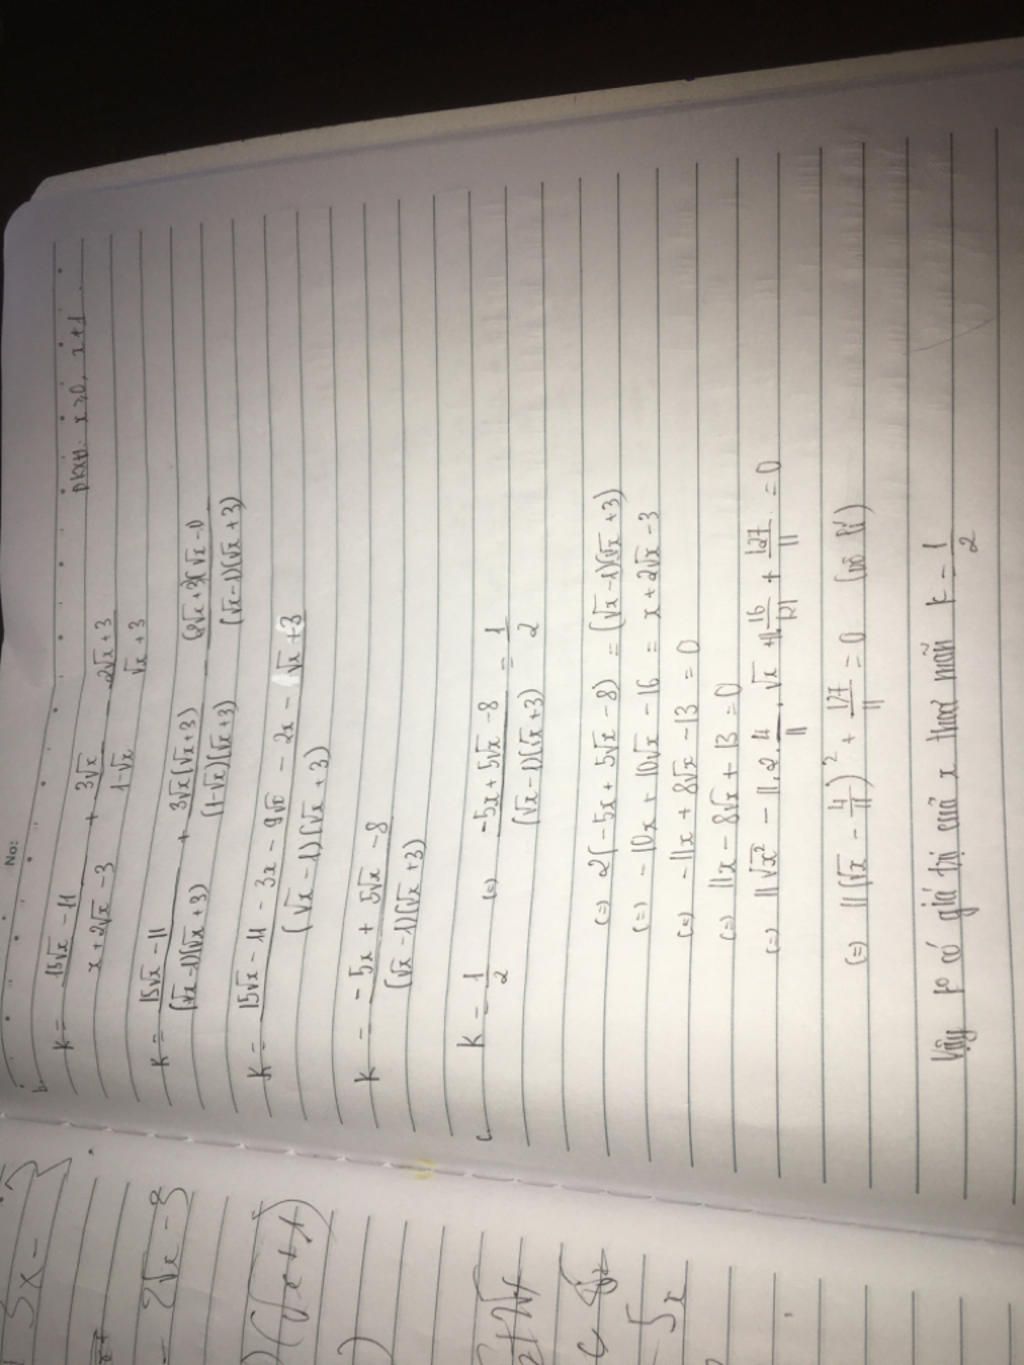 No:
b. ĐKXĐ: x ≥ 0, x ≠ 1
K = (15√x - 11)/(x + 2√x - 3) + 3√x/(1-√x) - (2√x + 3)/(√x + 3)
K = (15√x - 11)/((√x-1)(√x+3)) + 3√x(√x+3)/((1-√x)(√x+3)) - (2√x+3)(√x-1)/((√x-1)(√x+3))
K = (15√x - 11 - 3x - 9√x - 2x - √x + 3)/((√x-1)(√x+3))
K = (-5x + 5√x - 8)/((√x-1)(√x+3))
c. K = 1/2 (=) (-5x + 5√x - 8)/((√x-1)(√x+3)) = 1/2
(=) 2(-5x + 5√x - 8) = (√x-1)(√x+3)
(=) -10x + 10√x - 16 = x + 2√x - 3
(=) -11x + 8√x - 13 = 0
(=) 11x - 8√x + 13 = 0
(=) 11√x² - 11.2.4/11.√x + 11.16/121 + 127/11 = 0
(=) 11(√x - 4/11)² + 127/11 = 0 (vô lí)
Vậy ko có giá trị của x thoả mãn K = 1/2
5x -
- 2√x - 3
)(√x+1)
)
5x